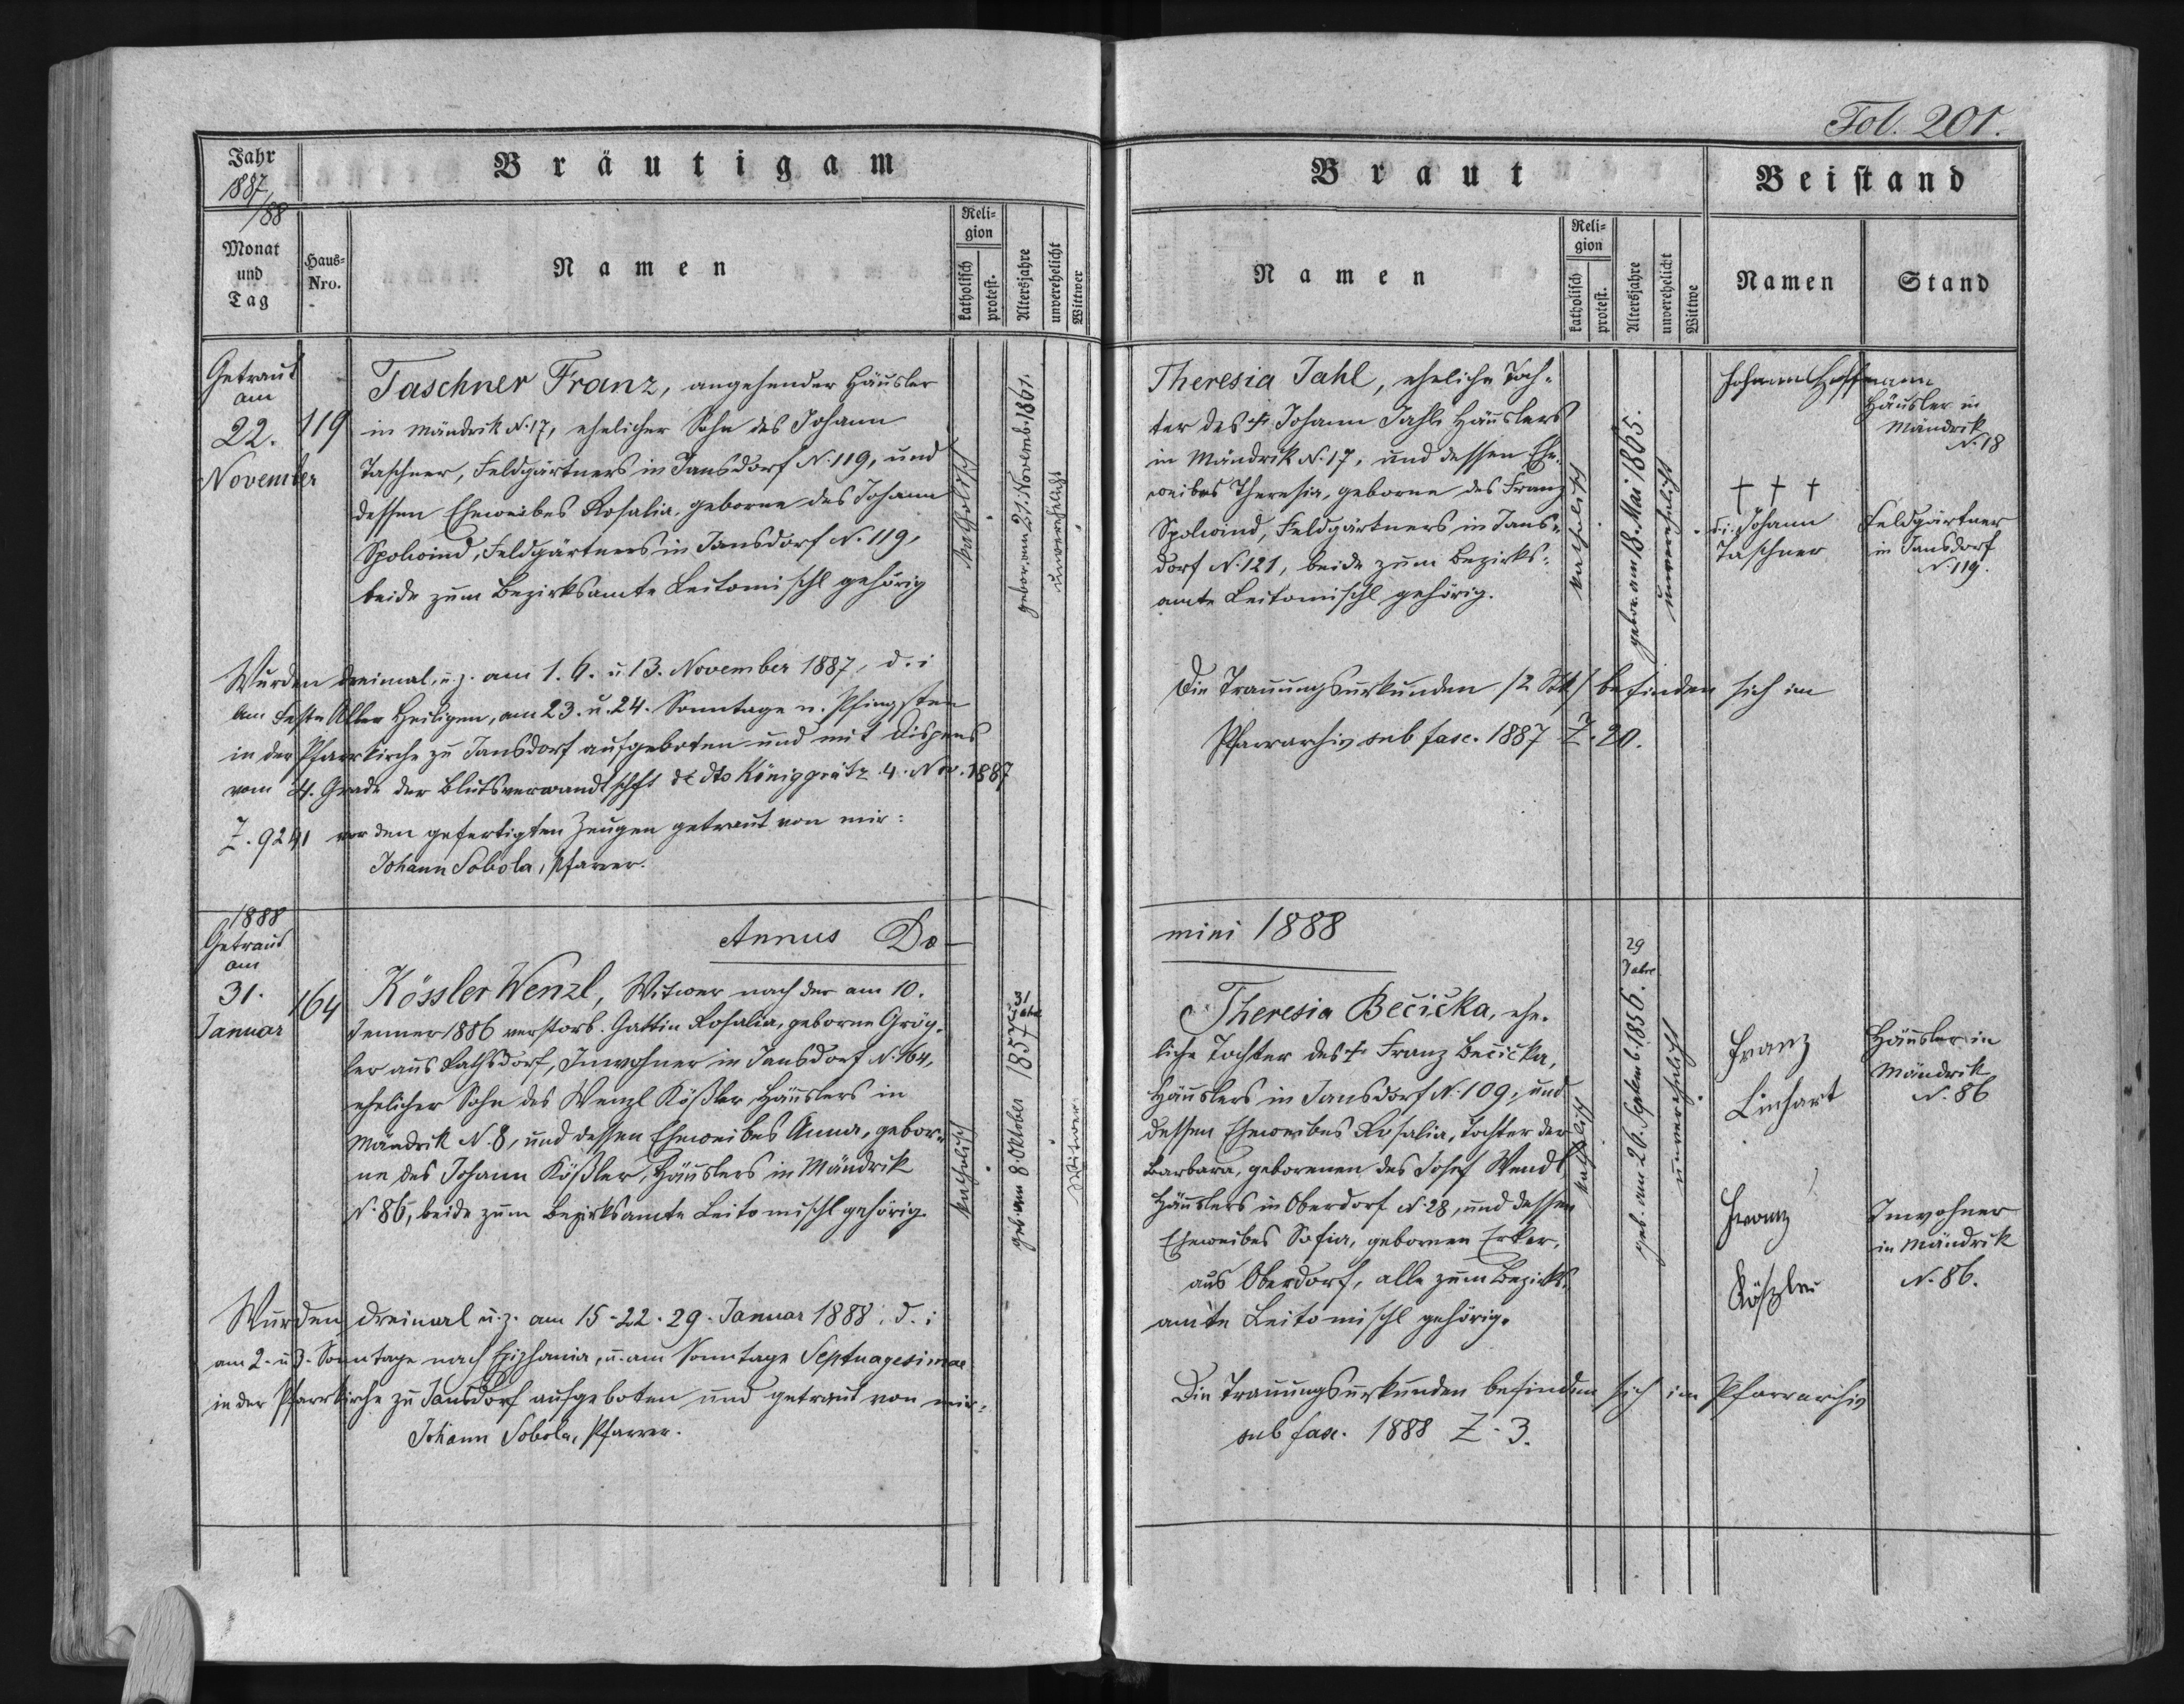 Fol. 201.
Jahr
1887/88
Bräutigam
Monat
und
Tag
Haus-
Nro.
Namen
Reli-
gion
katholisch
protest.
Altersjahre
unverehelicht
Wittwer
Getraut
am
22.
November
119
Taschner Franz, angehender Häusler
in Mändrik N. 17, ehelicher Sohn des Johann
Taschner, Feldgärtners in Jansdorf N. 119, und
dessen Eheweibes Rosalia, geborne des Johann
Spolwind, Feldgärtners in Jansdorf N. 119,
beide zum Bezirksamte Leitomischl gehörig
katholisch
gebor. am 21. Novemb. 1861.
unverehelicht
Wurden dreimal, u. z. am 1. 6. u 13. November 1887, d. i
am Feste Aller Heiligen, am 23. u. 24. Sonntage n. Pfingsten
in der Pfarrkirche zu Jansdorf aufgeboten und mit Dispens
vom 4. Grade der Blutsverwandtschft de dto Königgrätz 4. Nov. 1887
Z. 9241 vor den gefertigten Zeugen getraut von mir:
Johann Sobola, Pfarrer.
1888
Getraut
am
31.
Januar
164
Annus Do-
Kössler Wenzl, Witwer nach der am 10.
Jenner 1886 verstorb. Gattin Rosalia, geborne Grög-
ler aus Rathsdorf, Inwohner in Jansdorf N. 164,
ehelicher Sohn des Wenzl Kößler Häuslers in
Mändrik N. 8, und dessen Eheweibes Anna, gebor-
ne des Johann Kößler, Häuslers in Mändrik
N. 86, beide zum Bezirksamte Leitomischl gehörig.
katholisch
31
Jahre
geb. am 8. Oktober 1857
Witwer.
Wurden dreimal u. z. am 15. 22. 29. Januar 1888, d. i
am 2. u 3. Sonntage nach Epiphania, u. am Sonntage Septuagesimae
in der Pfarrkirche zu Jansdorf aufgeboten und getraut von mir:
Johann Sobola, Pfarrer.
Braut
Beistand
Namen
Reli-
gion
katholisch
protest.
Altersjahre
unverehelicht
Wittwe
Namen
Stand
Theresia Jahl, eheliche Toch-
ter des † Johann Jahl Häuslers
in Mändrik N. 17, und dessen Ehe-
weibes Theresia, geborne des Franz
Spolwind, Feldgärtners in Jans-
dorf N. 121, beide zum Bezirks-
amte Leitomischl gehörig.
katholisch
gebor. am 18. Mai 1865.
unverehelicht
Johann Hoffmann
Häusler in
Mändrik
N. 18
† † †
d. i. Johann
Taschner
Feldgärtner
in Jansdorf
N. 119.
Die Trauungsurkunden /2 Stk/ befinden sich im
Pfarrarchiv sub fasc. 1887 Z. 20.
mini 1888
Theresia Bečička, ehe-
liche Tochter des † Franz Bečička,
Häuslers in Jansdorf N. 109, und
dessen Eheweibes Rosalia, Tochter der
Barbara, gebornen des Josef Wendl
Häuslers in Oberdorf N. 28, und dessen
Eheweibes Sofia, gebornen Erker,
aus Oberdorf, alle zum Bezirks-
amte Leitomischl gehörig.
katholisch
29
Jahre
geb. am 26. Septemb. 1856.
unverehelicht
Franz
Linhart
Häusler in
Mändrik
N. 86
Franz
Inwohner
in Mändrik
N. 86.
Die Trauungsurkunden befinden sich im Pfarrarchiv
sub fasc. 1888 Z. 3.